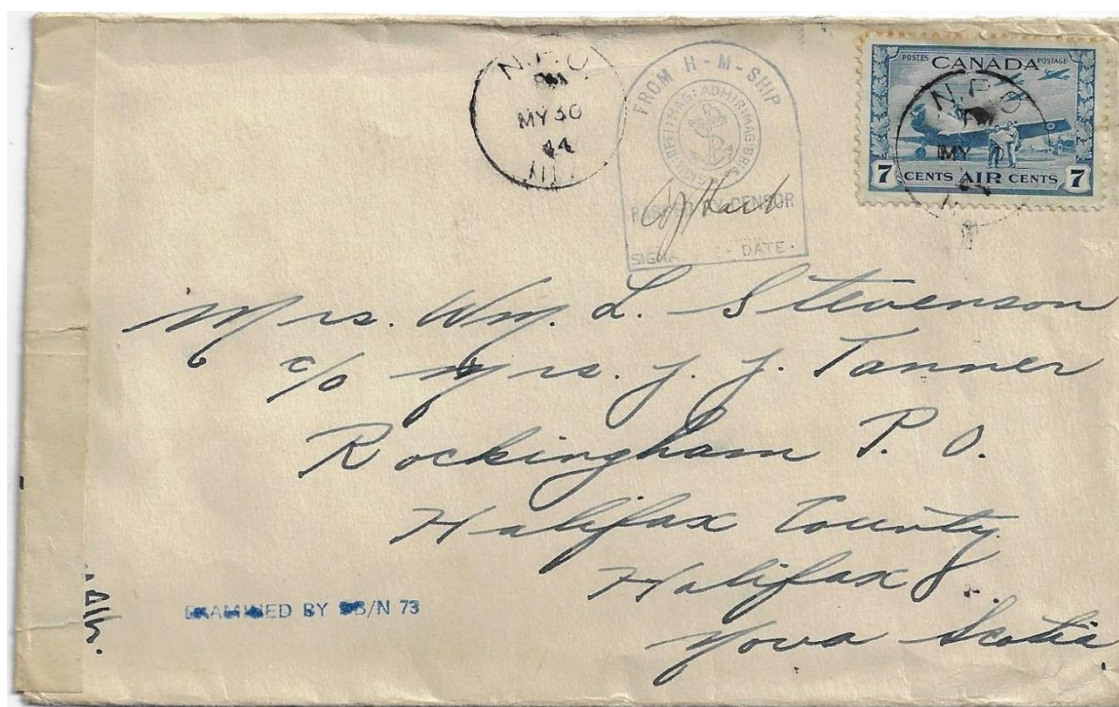 N.P.O.
MY 30
44
FROM H-M-SHIP
PASSED BY CENSOR
DATE.
POSTES CANADA POSTAGE
N.P.O.
MY
7 CENTS AIR CENTS 7
Mrs. Wm. L. Stevenson
c/o Mrs. J. J. Tanner
Rockingham P. O.
Halifax County
Halifax
Nova Scotia
EXAMINED BY DB/N 73